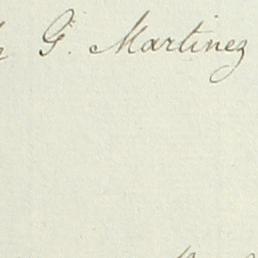 G. Martinez